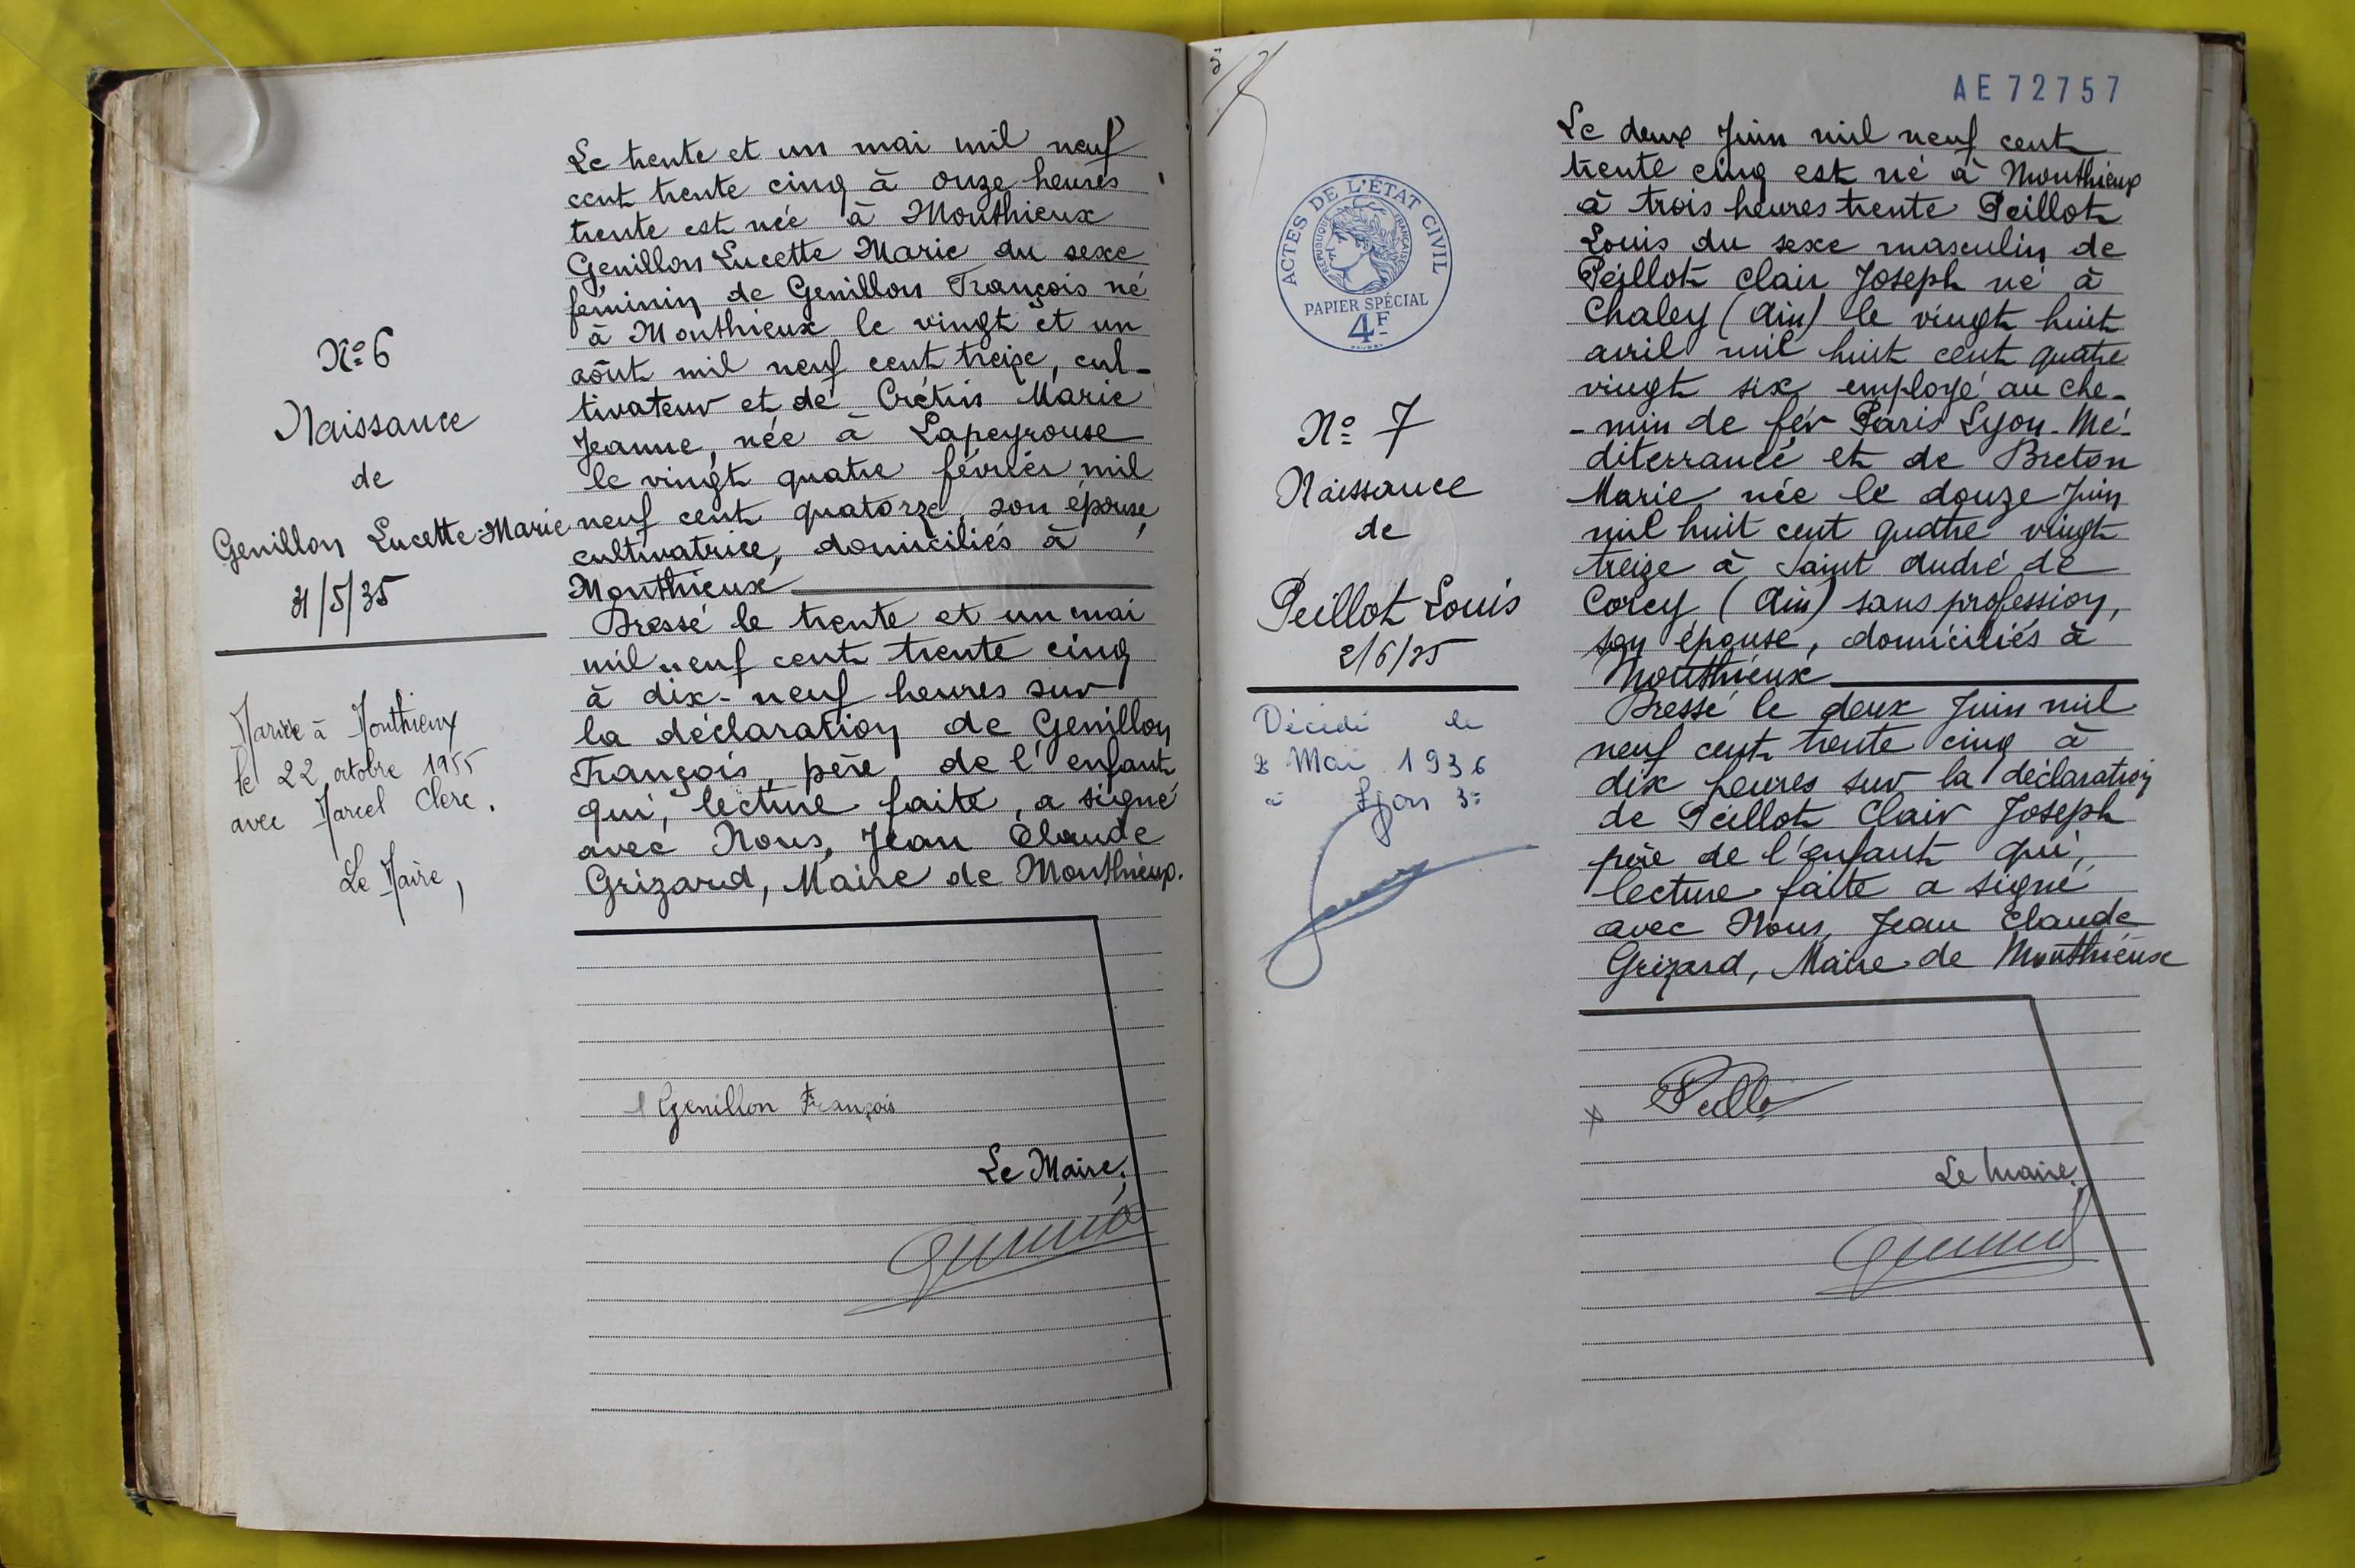 N° 6
Naissance
de
Genillon Lucette Marie
31/5/35
Mariée à Monthieux
le 22 octobre 1955
avec Marcel Clerc.
Le Maire,
Le trente et un mai mil neuf
cent trente cinq à onze heures
trente est née à Monthieux
Genillon Lucette Marie du sexe
féminin de Genillon François né
à Monthieux le vingt et un
août mil neuf cent treize, cul-
tivateur et de Crétin Marie
Jeanne, née à Lapeyrouse
le vingt quatre février mil
neuf cent quatorze, son épouse,
cultivatrice, domiciliés à
Monthieux
Dressé le trente et un mai
mil neuf cent trente cinq
à dix-neuf heures sur
la déclaration de Genillon
François, père de l'enfant
qui, lecture faite, a signé
avec Nous, Jean Claude
Grizard, Maire de Monthieux.
Genillon François
Le Maire,
AE72757
ACTES DE L'ÉTAT CIVIL
RÉPUBLIQUE FRANÇAISE
PAPIER SPÉCIAL
4F
N° 7
Naissance
de
Peillot Louis
2/6/35
Décédé le
2 Mai 1936
à Lyon 3e
Le deux Juin mil neuf cent
trente cinq est né à Monthieux
à trois heures trente Peillot
Louis du sexe masculin de
Peillot Clair Joseph né à
Chaley (Ain) le vingt huit
avril mil huit cent quatre
vingt six employé au che-
-min de fer Paris Lyon-Mé-
diterranée et de Breton
Marie née le douze Juin
mil huit cent quatre vingt
treize à Saint André de
Corcy (Ain) sans profession,
son épouse, domiciliés à
Monthieux
Dressé le deux Juin mil
neuf cent trente cinq à
dix heures sur la déclaration
de Peillot Clair Joseph
père de l'enfant qui,
lecture faite a signé
avec Nous, Jean Claude
Grizard, Maire de Monthieux
Le Maire,